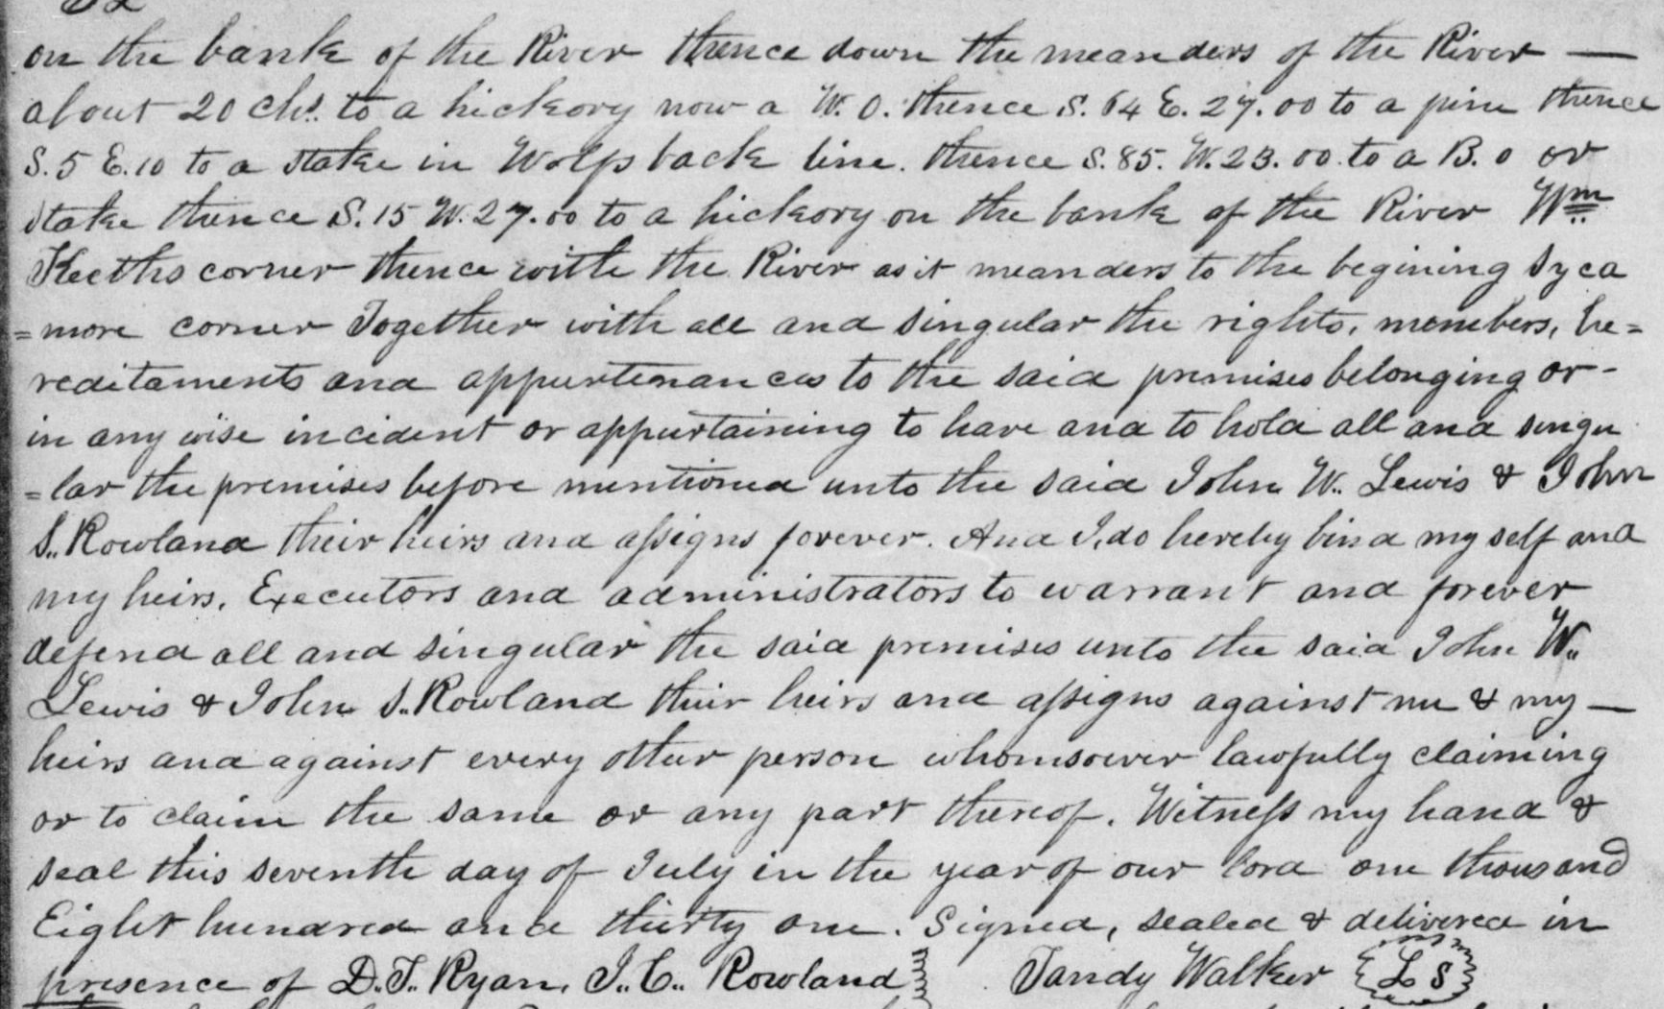 on the bank of the River thence down the meanders of the River —
about 20 chs. to a hickory now a W. O. thence S. 64 E. 27.00 to a pine thence
S. 5 E. 10 to a stake in Wolfs back line. thence S. 85. W. 23.00 to a B. O or
stake thence S. 15 W. 27.00 to a hickory on the bank of the River Wm
Keeths corner thence with the River as it meanders to the begining Syca
=more corner Together with all and singular the rights, members, he=
reditaments and appurtenances to the said premises belonging or -
in any wise incident or appurtaining to have and to hold all and singu
=lar the premises before mentioned unto the said John W. Lewis & John
S. Rowland their heirs and assigns forever. And I, do hereby bind my self and
my heirs, Executors and administrators to warrant and forever
defend all and singular the said premises unto the said John W.
Lewis & John S. Rowland their heirs and assigns against me & my —
heirs and against every other person whomsoever lawfully claiming
or to claim the same or any part thereof. Witness my hand &
seal this seventh day of July in the year of our Lord one thousand
Eight hundred and thirty one. Signed, sealed & delivered in
presence of D. T. Ryan, I. C. Rowland Tandy Walker L S